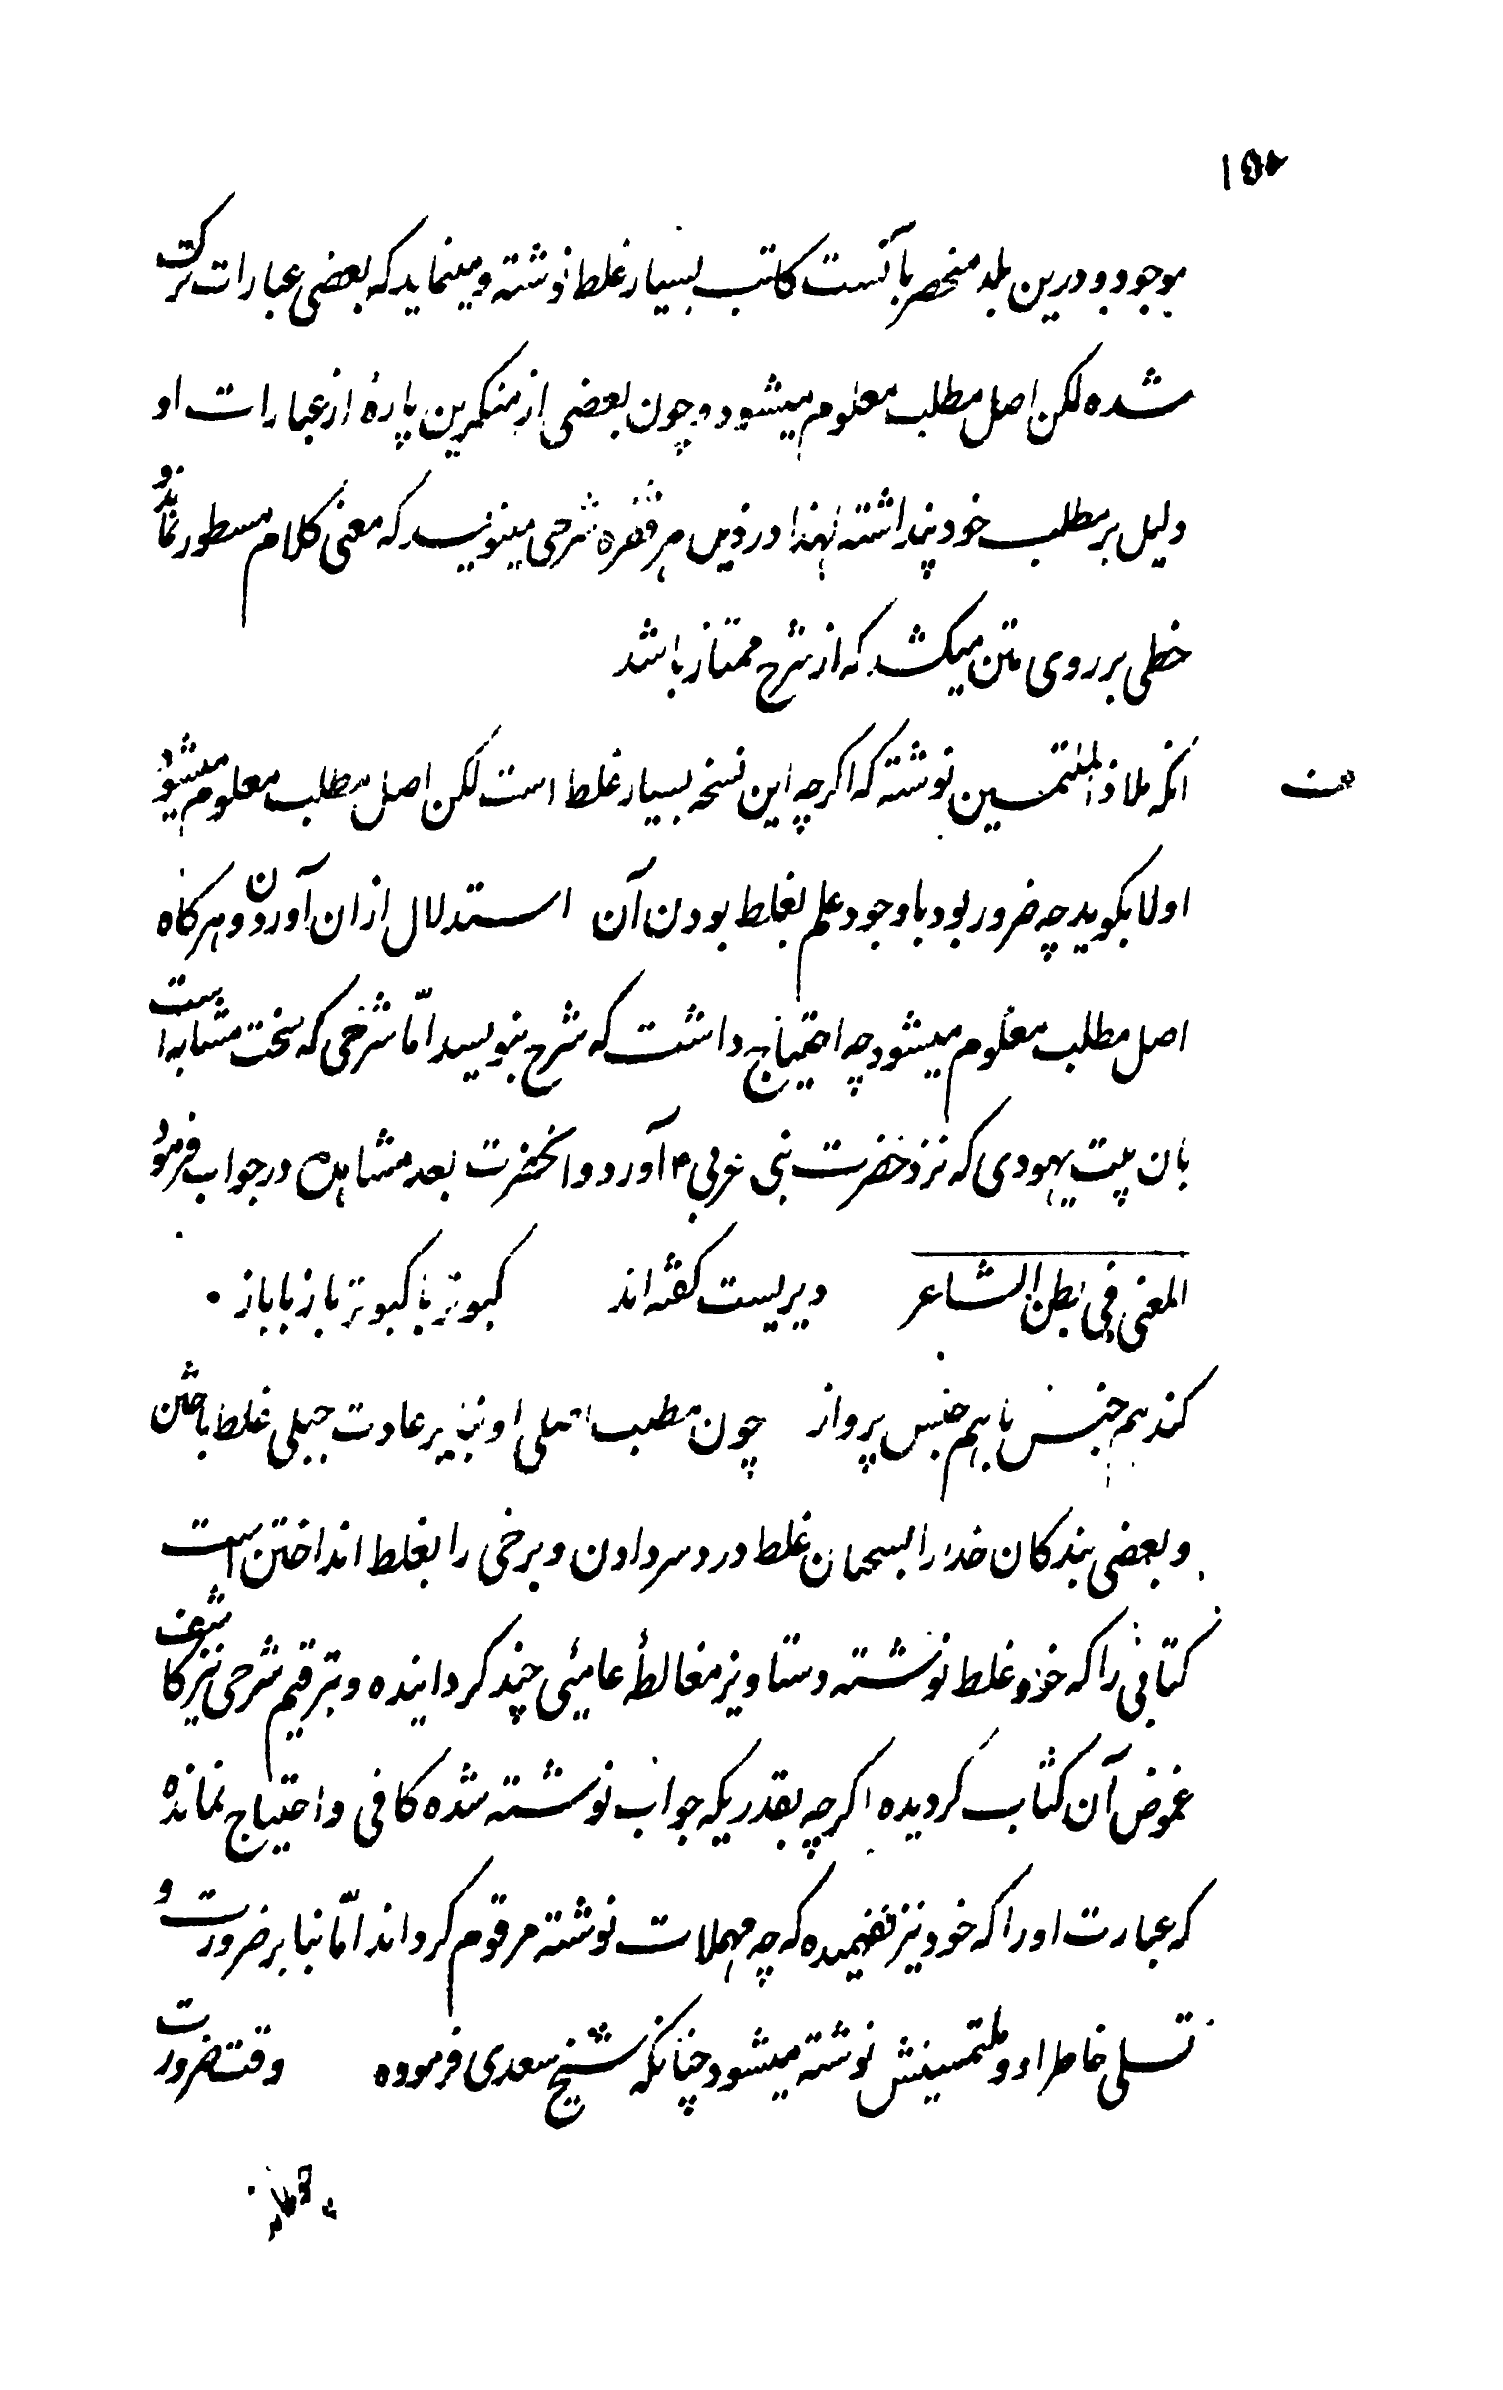 ۱۵۲
موجود و درین بلد منحصر بآنست کاتب بسیار غلط نوشته و مینماید که بعضی عبارات ترک
شده لکن اصل مطلب معلوم میشود و چون بعضی از منکرین پارهٔ از عبارات او
دلیل بر مطلب خود پنداشته لهذا در ذیل هر فقره شرحی مینویسد که معنی کلام مسطور نماند و
خطی بر روی متن میکشد که از شرح ممتاز باشد
انکه ملاذ الملتمسین نوشته که اکرچه این نسخه بسیار غلط است لکن اصل مطلب معلوم میشود
اولا بکوید چه ضرور بود باوجود علم بغلط بودن آن استدلال ازان آوردن و هرکاه
اصل مطلب معلوم میشود چه احتیاج داشت که شرح بنویسد امّا شرحی که سخت مشابه است
بان بیت یهودی که نزد حضرت نبی عربی ۴ آورد و انحضرت بعد مشاهده در جواب فرمود
المعنی فی بطن الشاعر دیریست کفته اند کبوتر با کبوتر باز با باز
کند هم جنس با هم جنس پرواز چون مطلب اصلی او بنابر عادت جبلی غلط باختن
و بعضی بندکان خدا را بسخنان غلط درد سر دادن و برخی را بغلط انداختن است
کتابی را که خود غلط نوشته دستاویز مغالطهٔ عامیئی چند کردانیده و بترقیم شرحی نیز کاشف
غموض آن کتاب کردیده اکرچه بقدریکه جواب نوشته شده کافی و احتیاج نمانده
که عبارت او را که خود نیز نفهمیده که چه مهملات نوشته مرقوم کرداند امّا بنابر ضرورت و
تسلی خاطر او و ملتمسینش نوشته میشود چنانکه شیخ سعدی فرموده وقت ضرورت